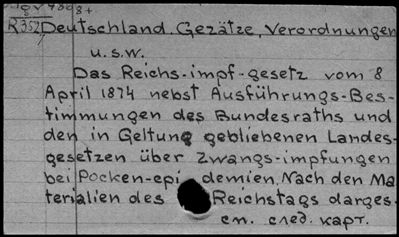 R352 Deutschland. Gezätze, Verordnungen
u.s.w.
Das Reichs-impf-gesetz vom 8
April 1874 nebst Ausführungs-Bes-
timmungen des Bundesraths und
den in Geltung gebliebenen Landes-
gesetzen über Zwangs-impfungen
bei Pocken-epi demien. Nach den Ma
terialien des Reichstags darges.
см. след. карт.